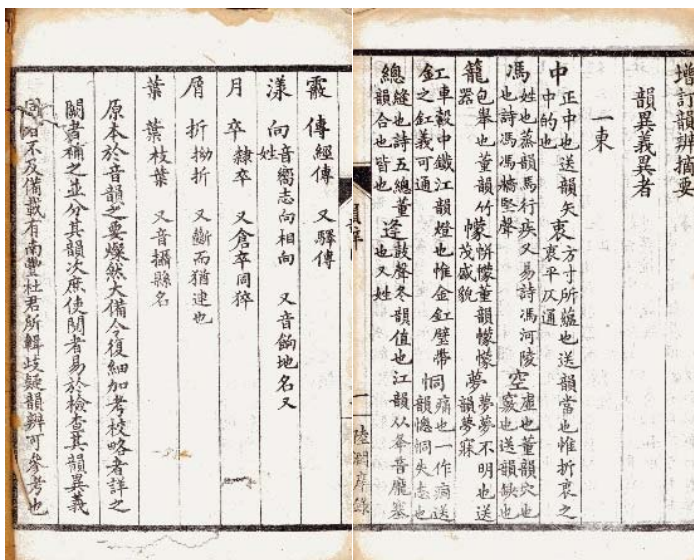 增訂韻辨摘要
韻異義異者
一東
中 正中也送韻矢中的也 衷 方寸所蘊也送韻當也惟折衷之衷平仄通
馮 姓也蒸韻馬行疾又易詩馮河陵也詩馮馮墻堅聲 空 虛也董韻穴也竅也送韻缺也
籠 包舉也董韻竹器 幪 帡幪董韻幪幪茂盛貌 夢 夢夢不明也送韻夢寐
釭 車轂中鐵江韻燈也惟金釭璧帶之釭義可通 恫 痛也一作痌送韻憁恫失志也
總 縫也詩五總董韻合也皆也 逢 鼓聲冬韻值也江韻从夆音龐塞也又姓
韻辨 一 陸潤庠錄
霰 傳 經傳 又驛傳
漾 向 音嚮志向相向 又音餉地名又姓
月 卒 隸卒 又倉卒同猝
屑 折 拗折 又斷而猶連也
葉 葉 枝葉 又音攝縣名
原本於音韻之要燦然大備今復細加考校略者詳之
闕者補之並分其韻次庶使閱者易於檢查其韻異義
同者不及備載有南豐杜君所輯歧疑韻辨可參考也